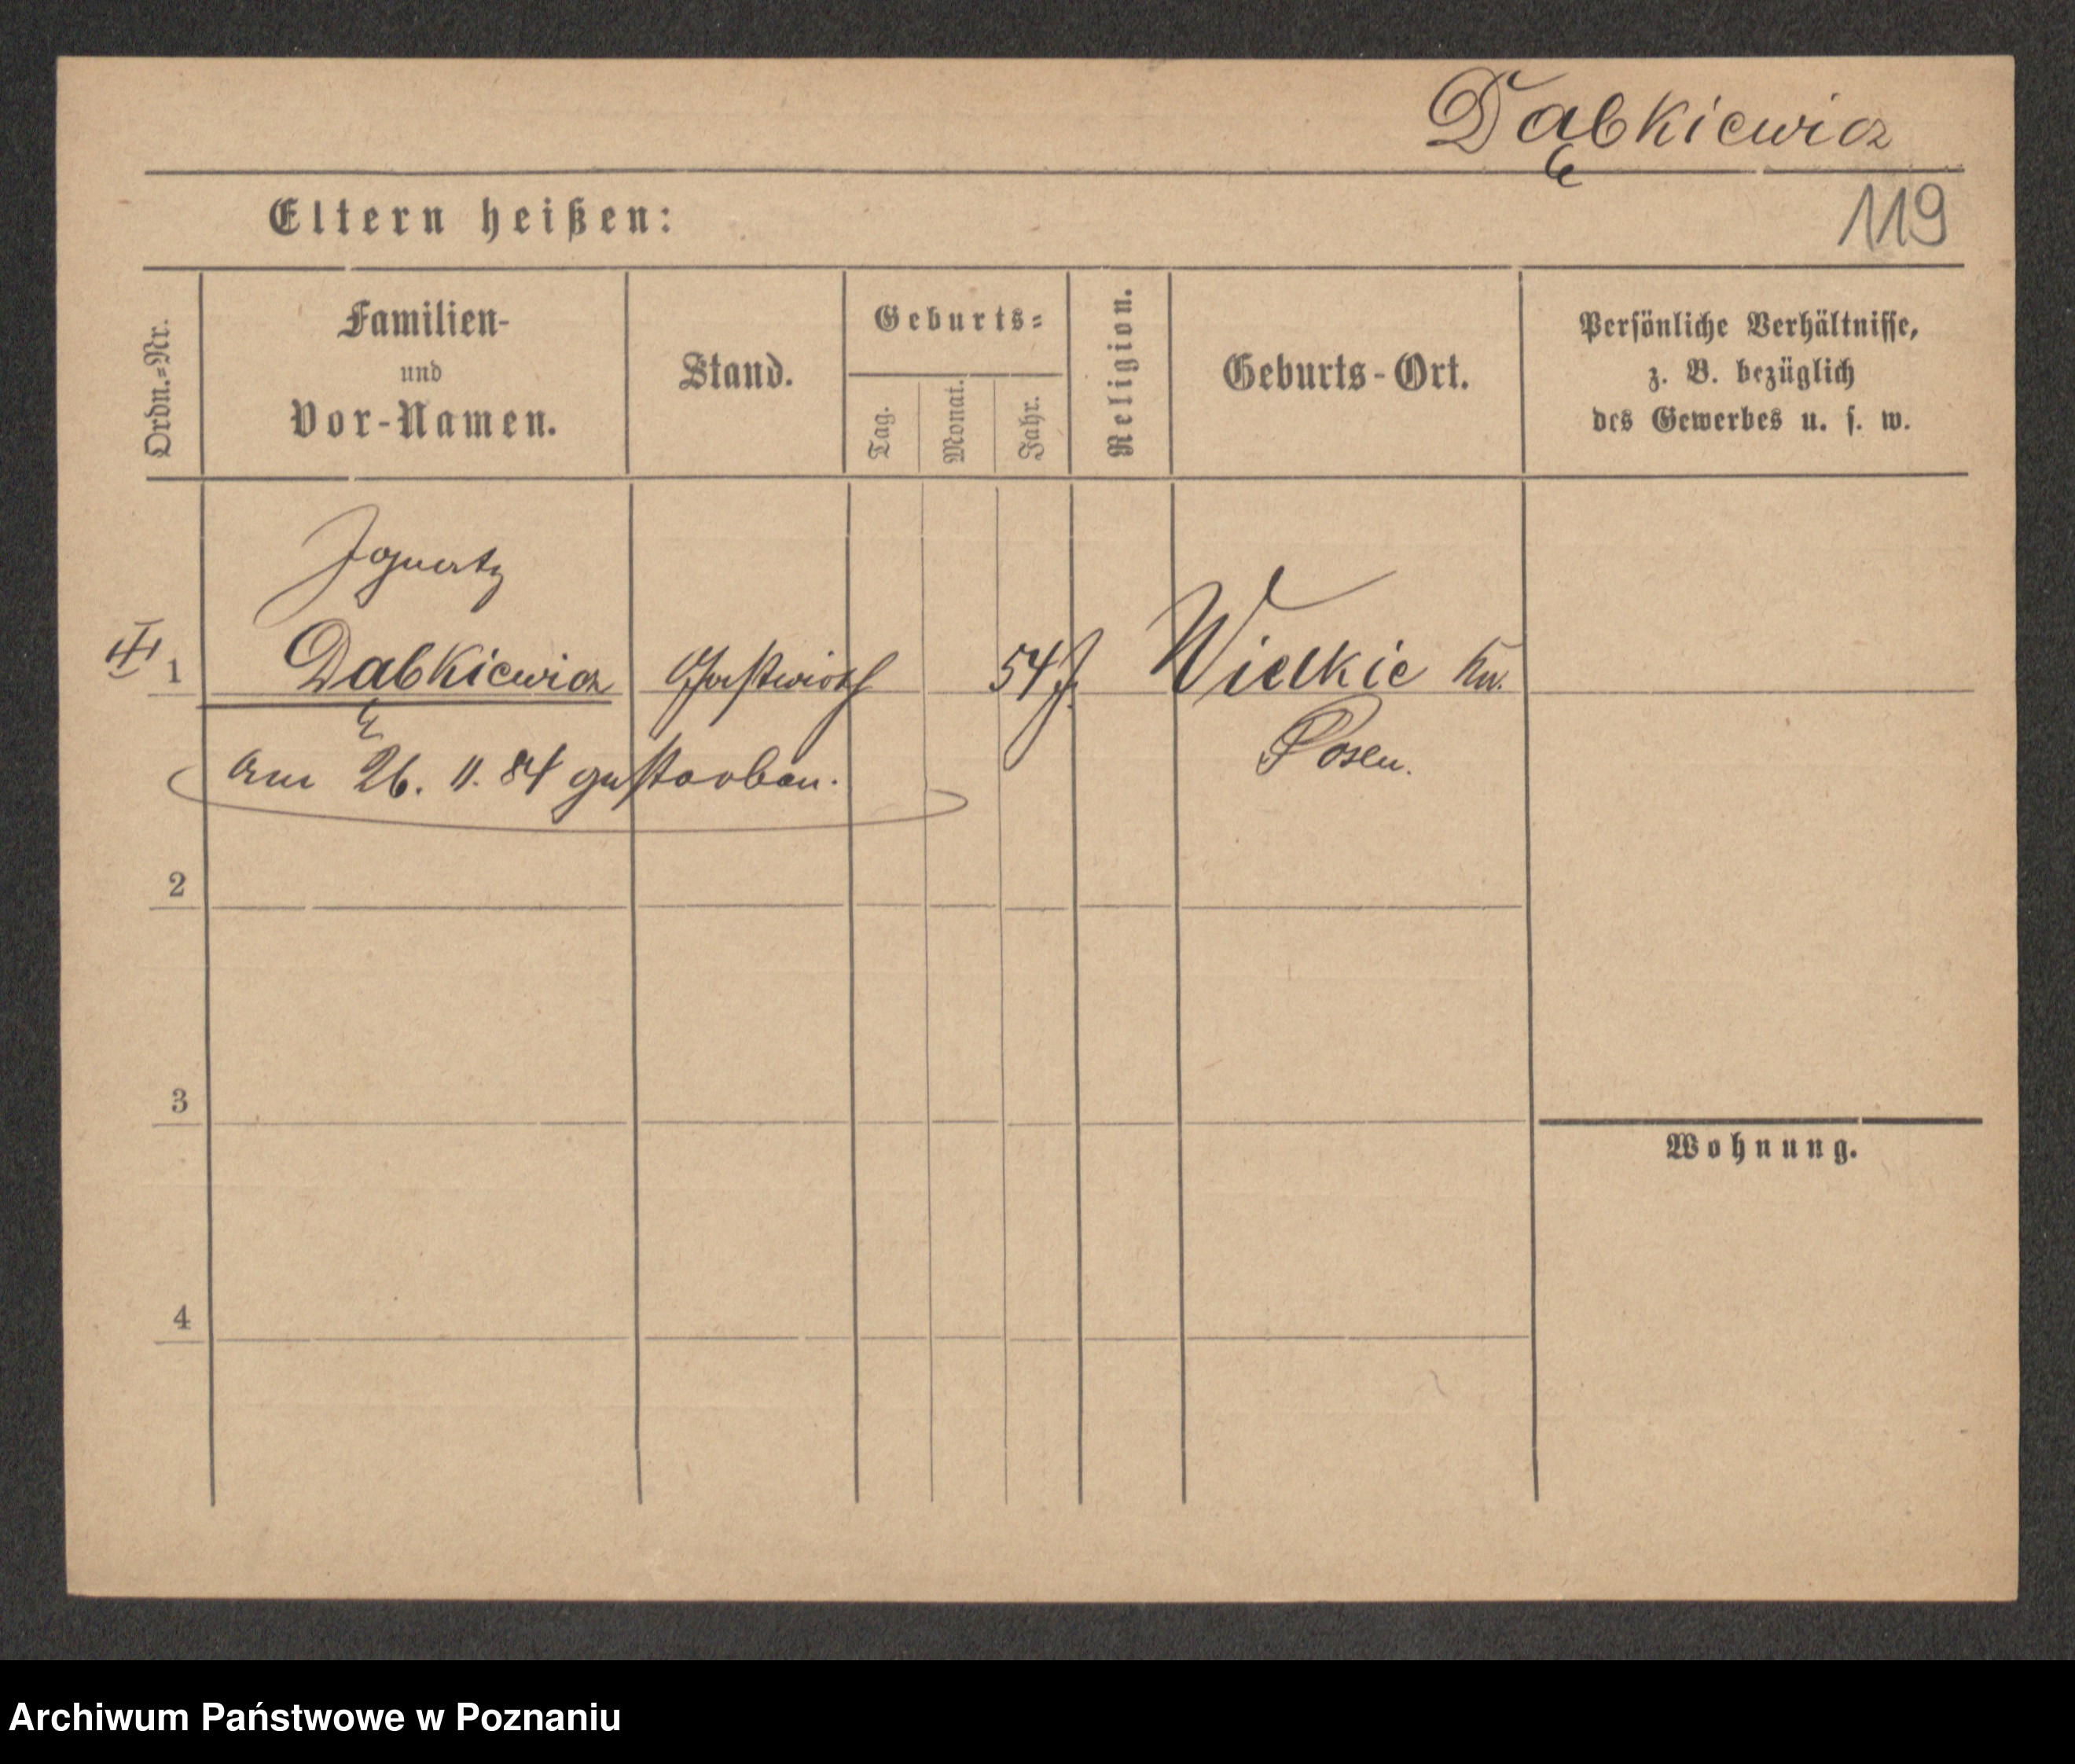 Dąbkiewicz
119
Eltern heißen:
Ordn.=Nr.
Familien-
und
Vor-Namen.
Stand.
Geburts=
Tag.
Monat.
Jahr.
Religion.
Geburts-Ort.
Persönliche Verhältnisse,
z. B. bezüglich
des Gewerbes u. s. w.
Ignatz
1 Dąbkiewicz Gastwirth 54 J. Wielkie Kr.
Posen.
am 26. 11. 84 gestorben.
2
3
Wohnung.
4
Archiwum Państwowe w Poznaniu